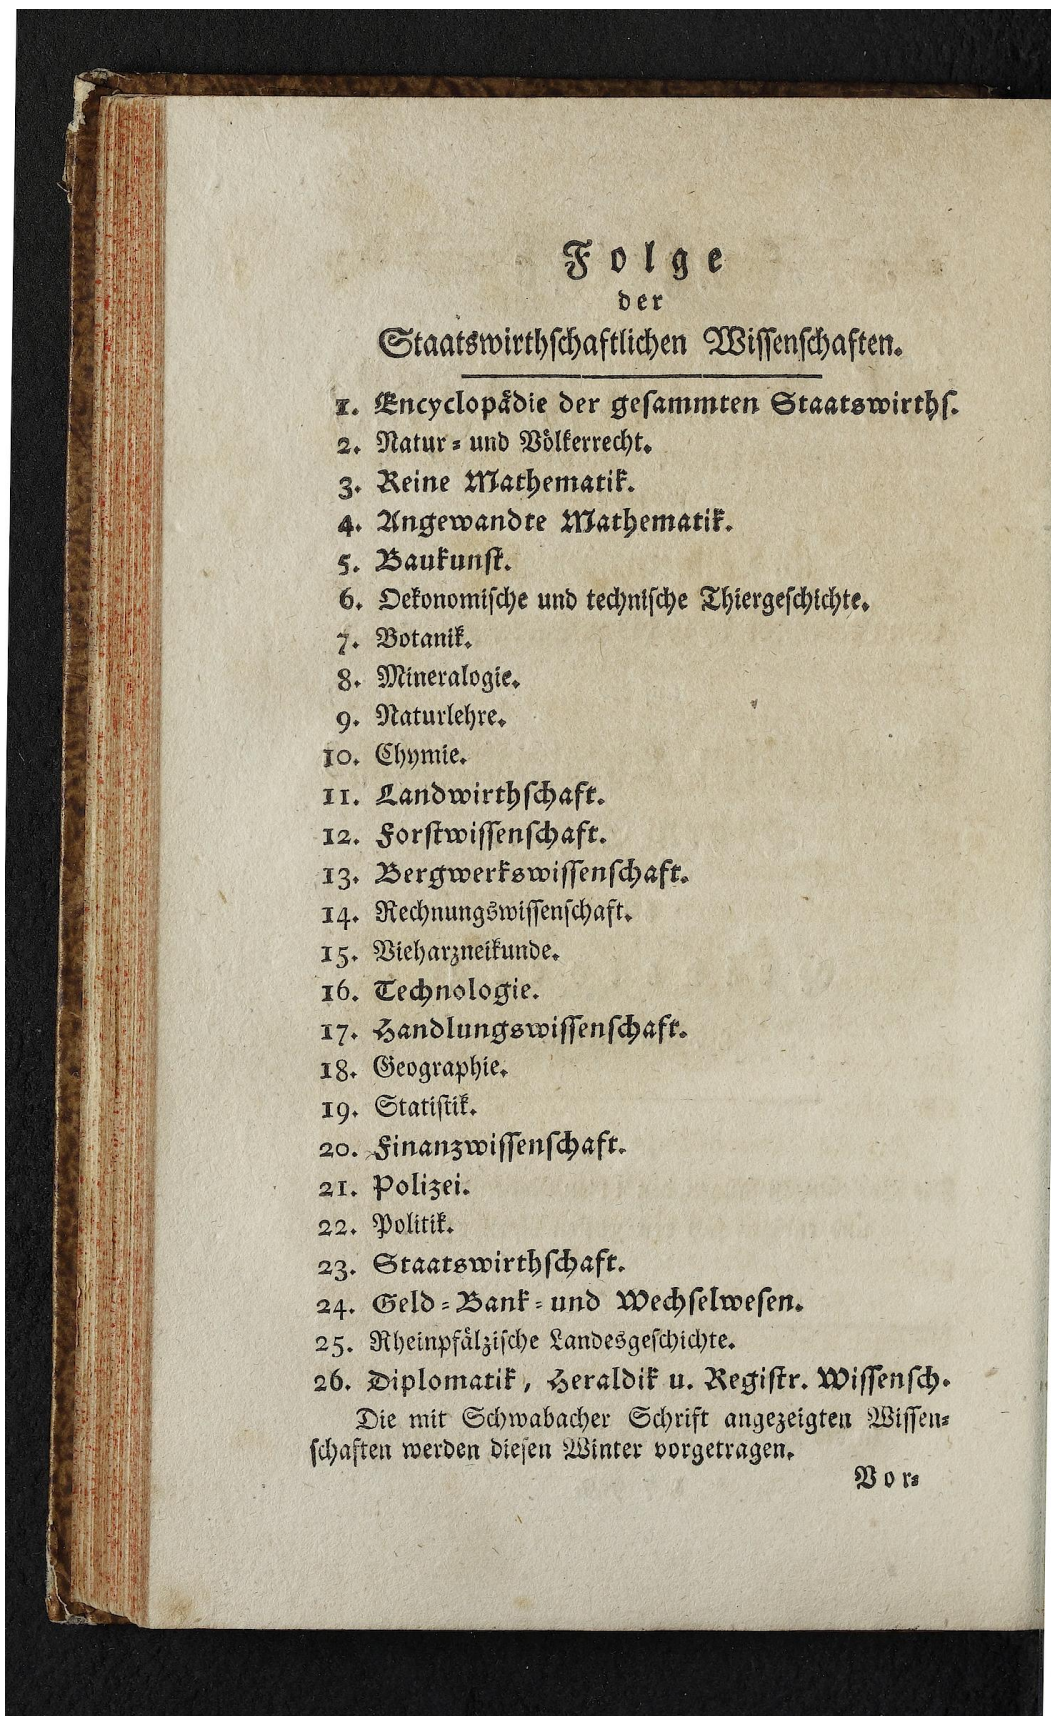 Folge
der
Staatswirthſchaftlichen Wiſſenſchaften.
1. Encyclopådie der geſammten Staatswirthſ.
2. Natur⸗ und Völkerrecht.
3. Reine Mathematik.
4. Angewandte Mathematik.
5. Baukunſt.
6. Oekonomiſche und techniſche Thiergeſchichte.
7. Botanik.
8. Mineralogie.
9. Naturlehre.
10. Chymie.
11. Landwirthſchaft.
12. Forſtwiſſenſchaft.
13. Bergwerkswiſſenſchaft.
14. Rechnungswiſſenſchaft.
15. Vieharzneikunde.
16. Technologie.
17. Handlungswiſſenſchaft.
18. Geographie.
19. Statiſtik.
20. Finanzwiſſenſchaft.
21. Polizei.
22. Politik.
23. Staatswirthſchaft.
24. Geld⸗Bank⸗und Wechſelweſen.
25. Rheinpfålziſche Landesgeſchichte.
26. Diplomatik, Heraldik u. Regiſtr. Wiſſenſch.
Die mit Schwabacher Schrift angezeigten Wiſſen⸗
ſchaften werden dieſen Winter vorgetragen.
Vor⸗